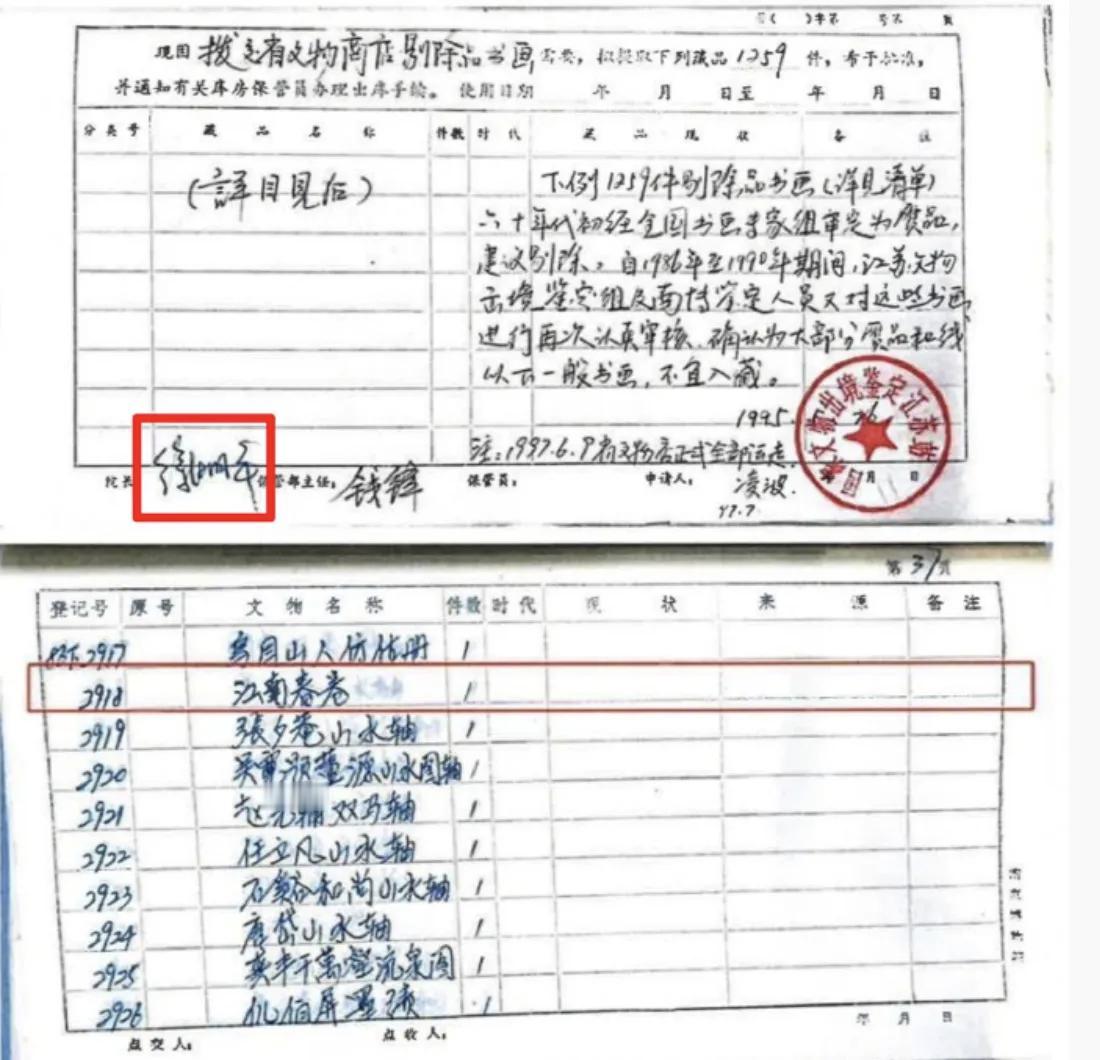 现因拨交省文物商店剔除品书画需要，拟提取下列藏品1259件，希予批准，
并通知有关库房保管员办理出库手续。 使用日期 年 月 日至 年 月 日
分类号 藏品名称 件数 时代 藏品现状 备注
(詳目見后)
下例1259件剔除品书画(详见清单)
六十年代初经全国书画专家组审定为赝品，
建议剔除。自1986年至1990年期间，江苏文物
出境鉴定组及南博鉴定人员又对这些书画
进行再次认真审核，确认为大部分赝品和线
以下一般书画，不宜入藏。
1995. 26
注：1997.6.9省文物店正式全部运走.
院长 徐湖平 保管部主任：钱锋 保管员： 申请人：凌波. 月 日
97.7.
国家文物出境鉴定江苏站
第37页
登记号 原号 文物名称 件数 时代 现状 来源 备注
2917 乌目山人仿估册 1
2918 江南春卷 1
2919 張夕庵山水轴 1
2920 山水图轴 1
2921 双马轴 1
2922 任立凡山水轴 1
2923 和尚山水轴 1
2924 唐岱山水轴 1
2925 流泉图 1
2926 1
年 月 日
点交人： 点收人：